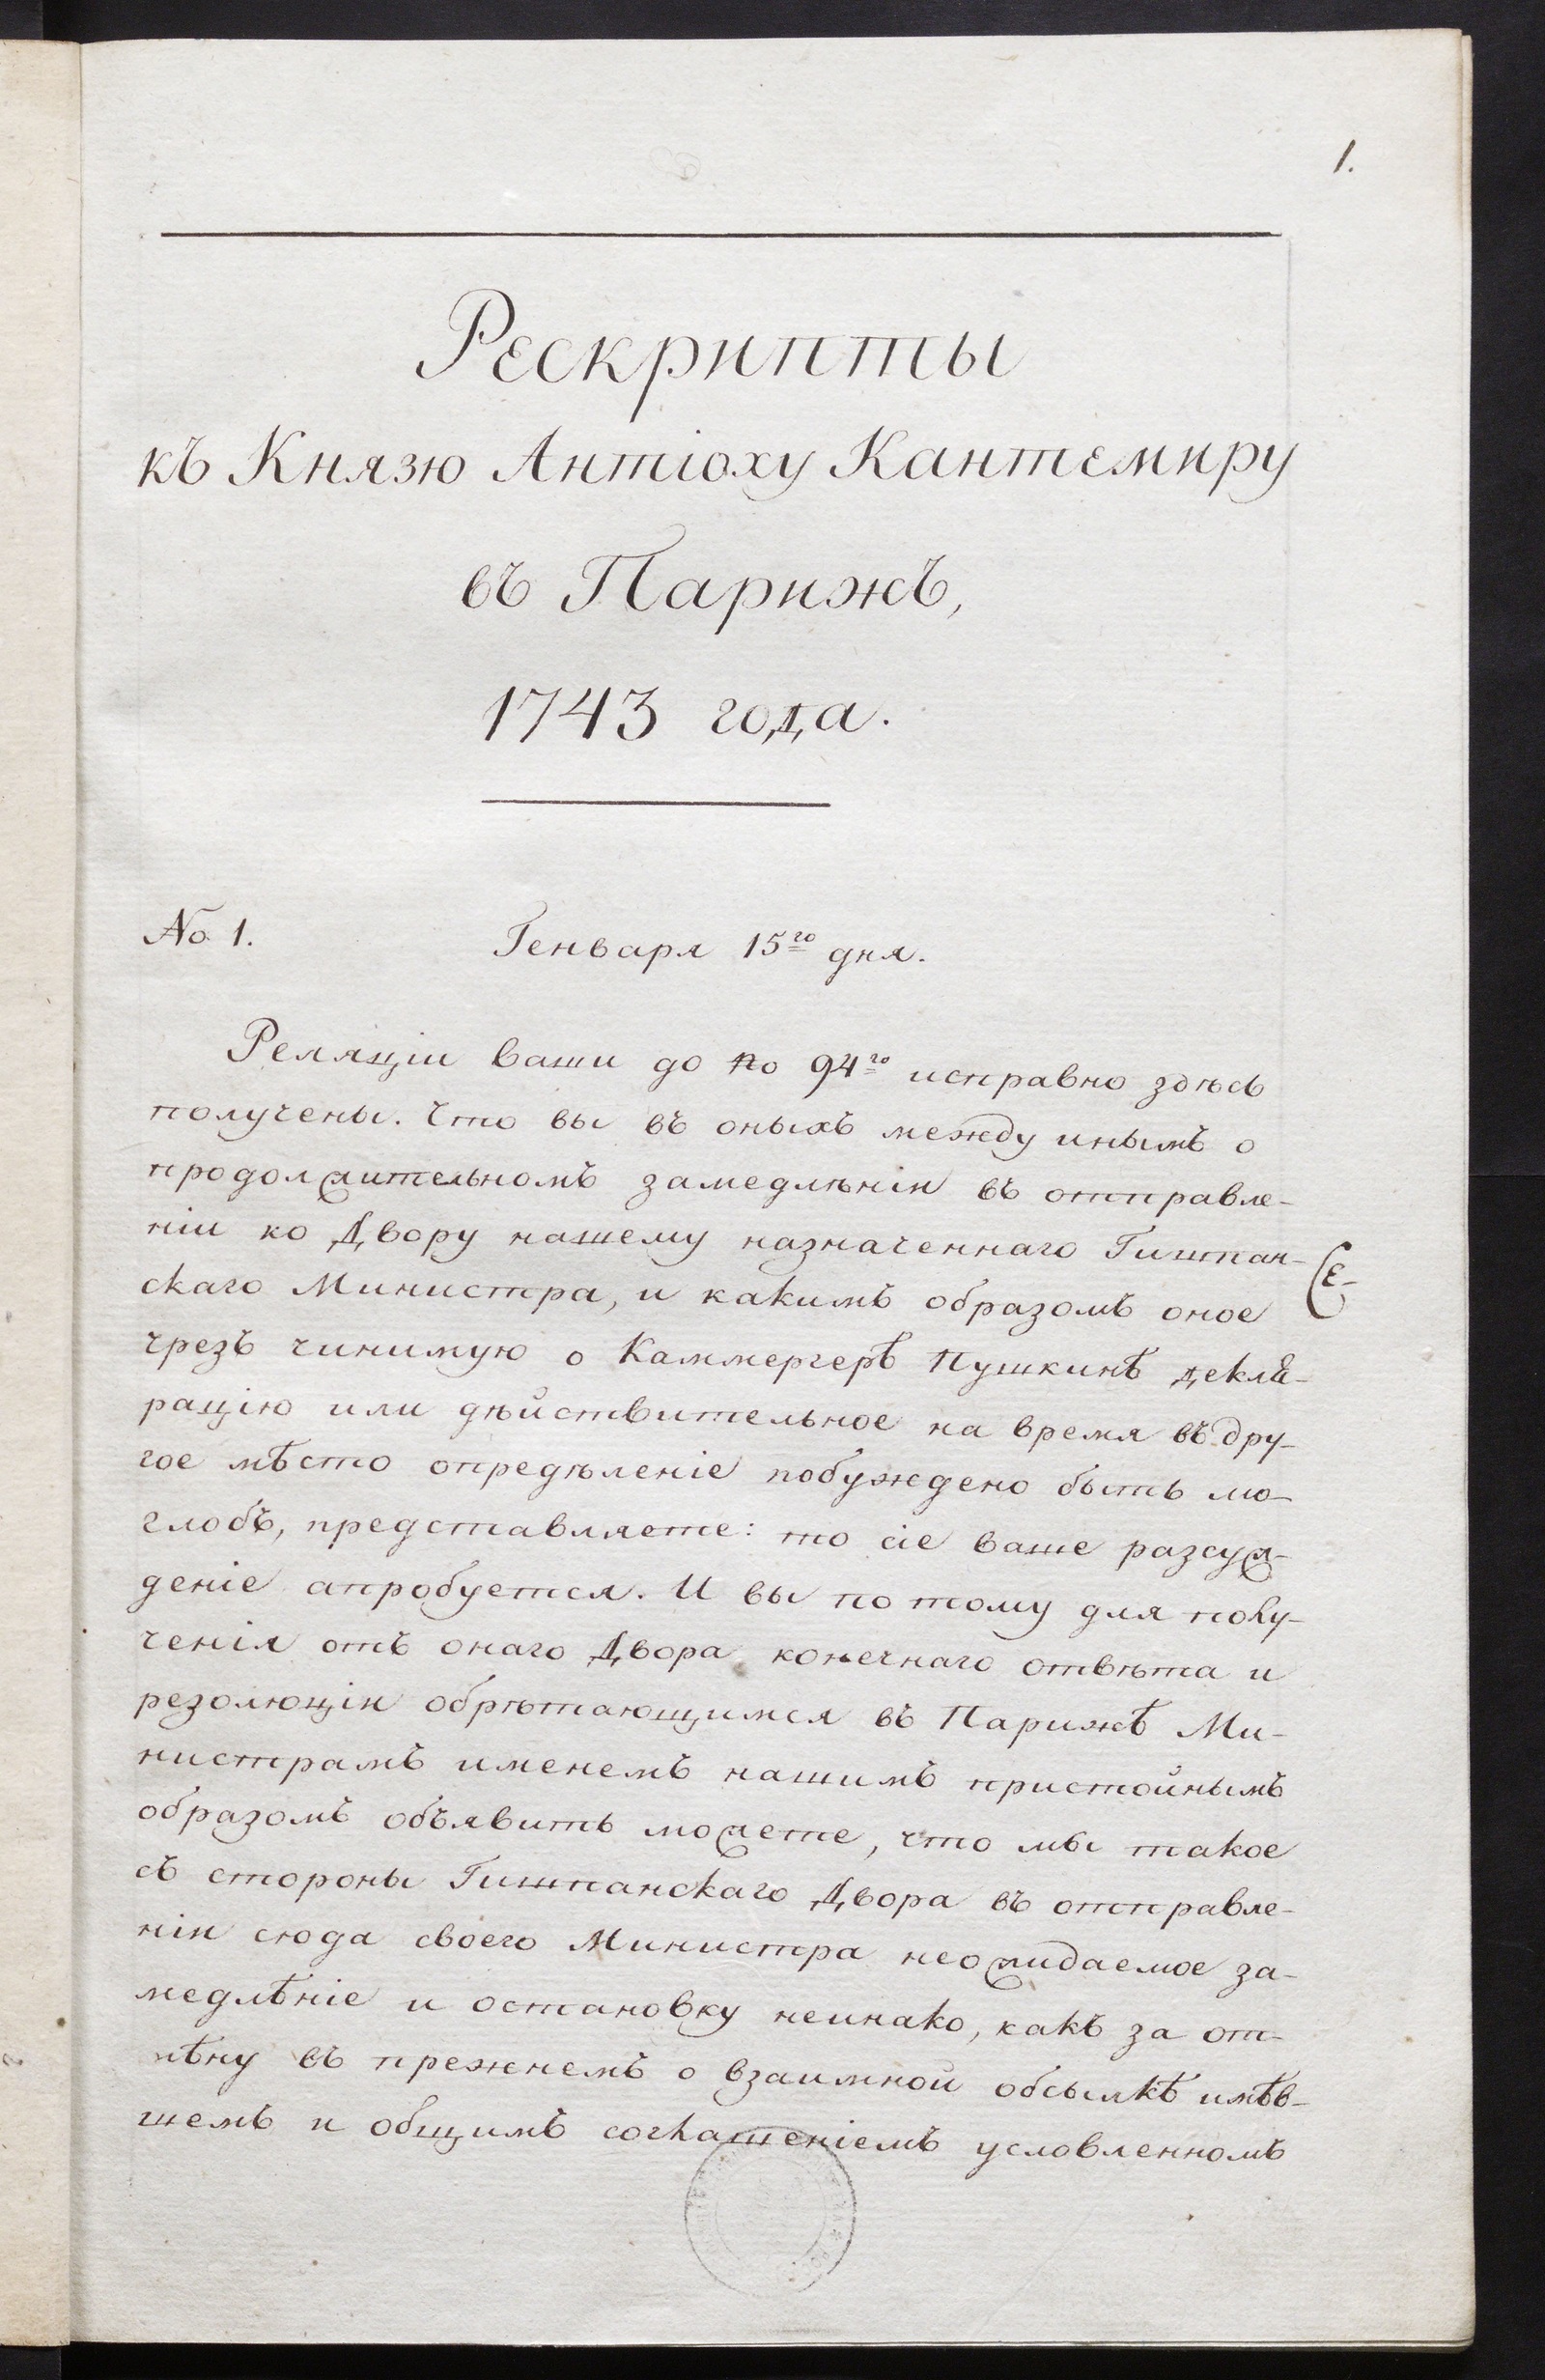 1.
Рескрипты
къ Князю Антіоху Кантемиру
въ Парижъ,
1743 года.
No 1. Генваря 15го дня.
Реляціи ваши до No 94го исправно здѣсь
получены. Что вы въ оныхъ между инымъ о
продолжительномъ замедлѣніи въ отправле-
ніи ко Двору нашему назначеннаго Гишпан-
скаго Министра, и какимъ образомъ оное
чрезъ чинимую о Каммергерѣ Пушкинѣ декла-
рацію или дѣйствительное на время въ дру-
гое мѣсто опредѣленіе побуждено быть мо-
глобъ, представляете: то сіе ваше разсуж-
деніе апробуется. И вы по тому для полу-
ченія отъ онаго Двора конечнаго отвѣта и
резолюціи обрѣтающимся въ Парижѣ Ми-
нистрамъ именемъ нашимъ пристойнымъ
образомъ объявить можете, что мы такое
съ стороны Гишпанскаго Двора въ отправле-
ніи сюда своего Министра неожидаемое за-
медлѣніе и остановку неинако, какъ за от-
мѣну въ прежнемъ о взаимной обсылкѣ имѣв-
шемъ и общимъ соглашеніемъ условленномъ